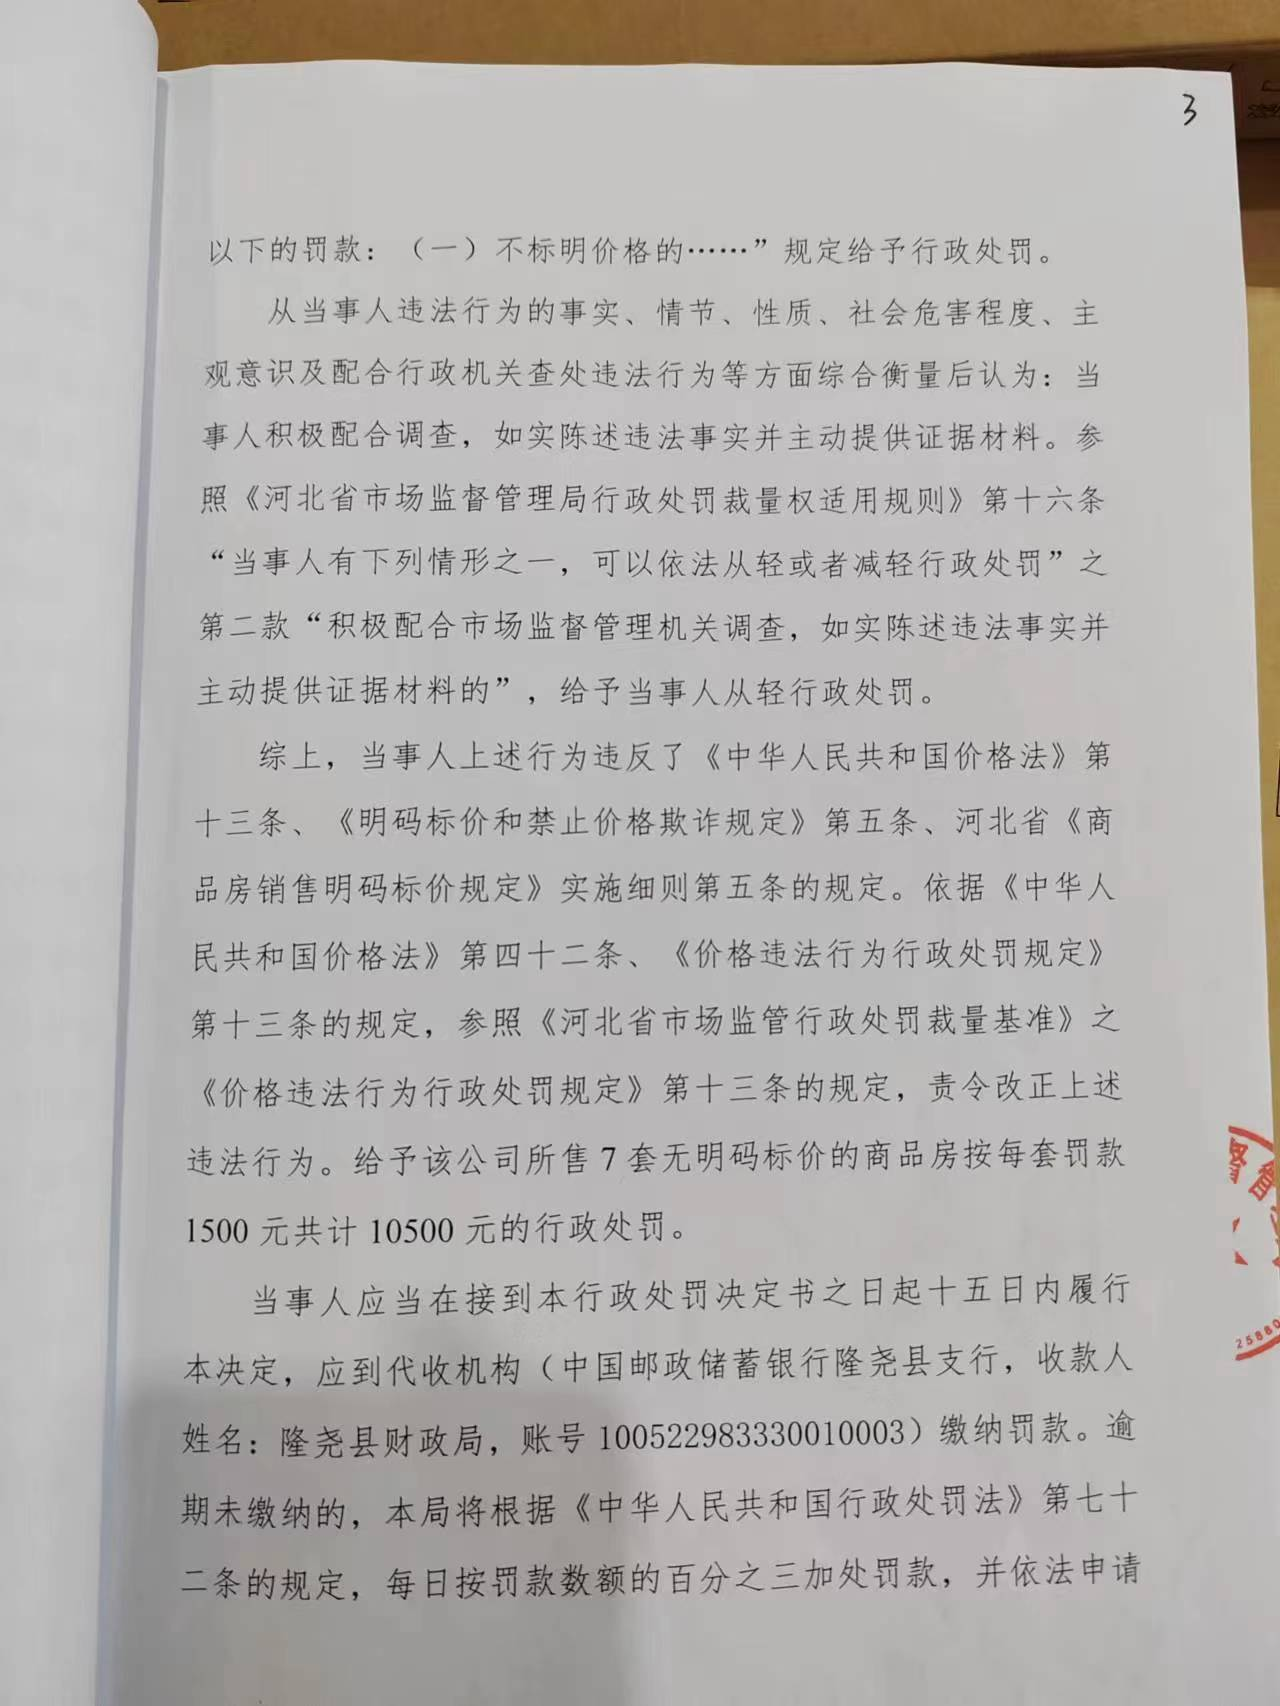 3
以下的罚款：（一）不标明价格的……”规定给予行政处罚。
从当事人违法行为的事实、情节、性质、社会危害程度、主
观意识及配合行政机关查处违法行为等方面综合衡量后认为：当
事人积极配合调查，如实陈述违法事实并主动提供证据材料。参
照《河北省市场监督管理局行政处罚裁量权适用规则》第十六条
“当事人有下列情形之一，可以依法从轻或者减轻行政处罚”之
第二款“积极配合市场监督管理机关调查，如实陈述违法事实并
主动提供证据材料的”，给予当事人从轻行政处罚。
综上，当事人上述行为违反了《中华人民共和国价格法》第
十三条、《明码标价和禁止价格欺诈规定》第五条、河北省《商
品房销售明码标价规定》实施细则第五条的规定。依据《中华人
民共和国价格法》第四十二条、《价格违法行为行政处罚规定》
第十三条的规定，参照《河北省市场监管行政处罚裁量基准》之
《价格违法行为行政处罚规定》第十三条的规定，责令改正上述
违法行为。给予该公司所售 7 套无明码标价的商品房按每套罚款
1500 元共计 10500 元的行政处罚。
当事人应当在接到本行政处罚决定书之日起十五日内履行
本决定，应到代收机构（中国邮政储蓄银行隆尧县支行，收款人
姓名：隆尧县财政局，账号 100522983330010003）缴纳罚款。逾
期未缴纳的，本局将根据《中华人民共和国行政处罚法》第七十
二条的规定，每日按罚款数额的百分之三加处罚款，并依法申请
25880